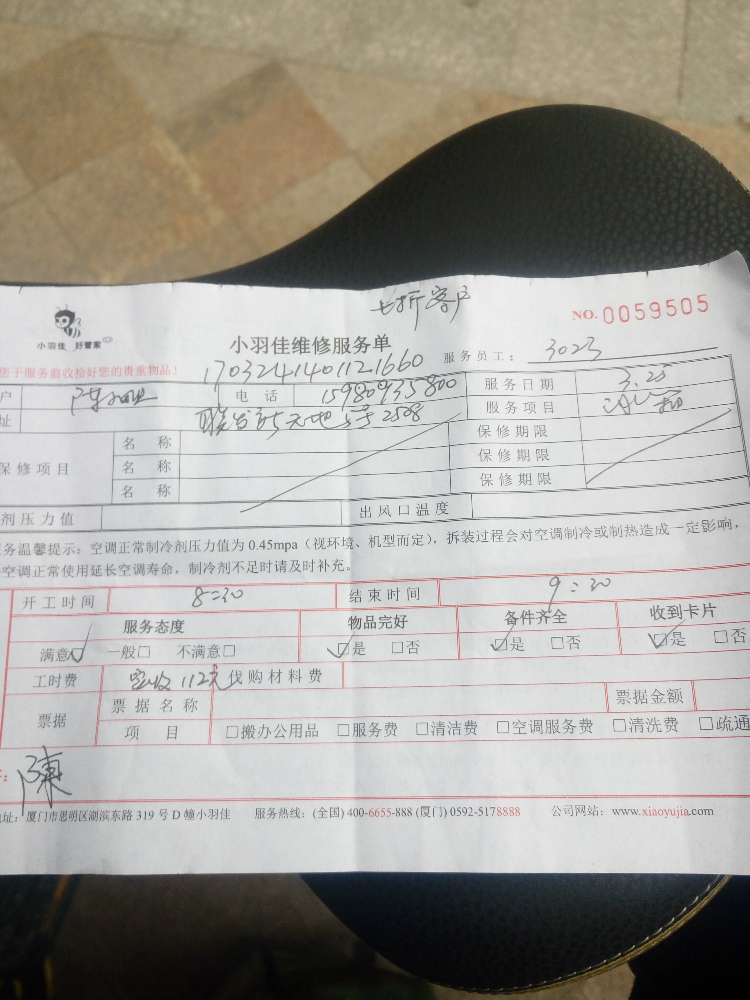 七折客户
NO. 0059505
小羽佳 好管家
小羽佳维修服务单
服务员工： 3023
您于服务前收拾好您的贵重物品！ 1703241401121660
户 陈 电话 15980935800 服务日期 3.25
址 联发新天地 5号2508 服务项目
保修项目 名称 保修期限
名称 保修期限
名称 保修期限
剂压力值 出风口温度
务温馨提示：空调正常制冷剂压力值为 0.45mpa（视环境、机型而定），拆装过程会对空调制冷或制热造成一定影响，
空调正常使用延长空调寿命，制冷剂不足时请及时补充。
开工时间 8=30 结束时间 9:30
服务态度 物品完好 备件齐全 收到卡片
满意☑ 一般□ 不满意□ ☑是 □否 ☑是 □否 ☑是 □否
工时费 实收112元 代购材料费
票据 票据名称 票据金额
项目 □搬办公用品 □服务费 □清洁费 □空调服务费 □清洗费 □疏通
陳
址：厦门市思明区湖滨东路 319 号 D 幢小羽佳 服务热线：(全国) 400-6655-888 (厦门) 0592-5178888 公司网站：www.xiaoyujia.com